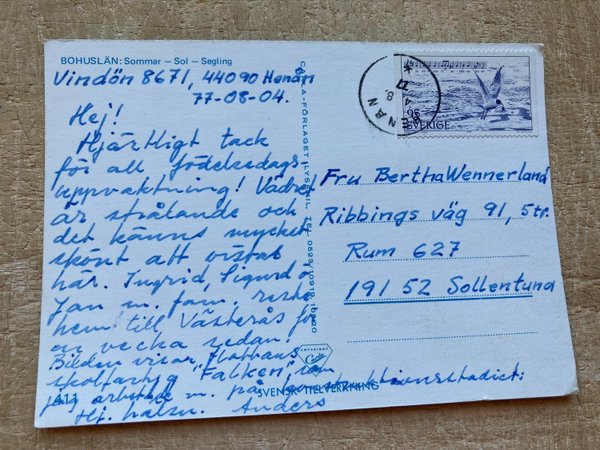 BOHUSLÄN: Sommar — Sol — Segling
Vindön 8671, 44090 Henån
77-08-04.
Hej!
Hjärtligt tack
för all födelsedags-
uppvaktning! Vädret
är strålande och
det känns mycket
skönt att vistas
här. Ingrid, Sigurd o
Jan m. fam. reste
hem till Västerås för
en vecka sedan!
Bilden visar Flottans
skolfartyg "Falken", som
jag arbetade m. på
Hj. hälsn. Anders
A11
SVENSK TILLVERKNING
COPYRIGHT
HENÅN
4 8
77
SVERIGE
Fru Bertha Wennerland
Ribbings väg 91, 5tr.
Rum 627
191 52 Sollentuna